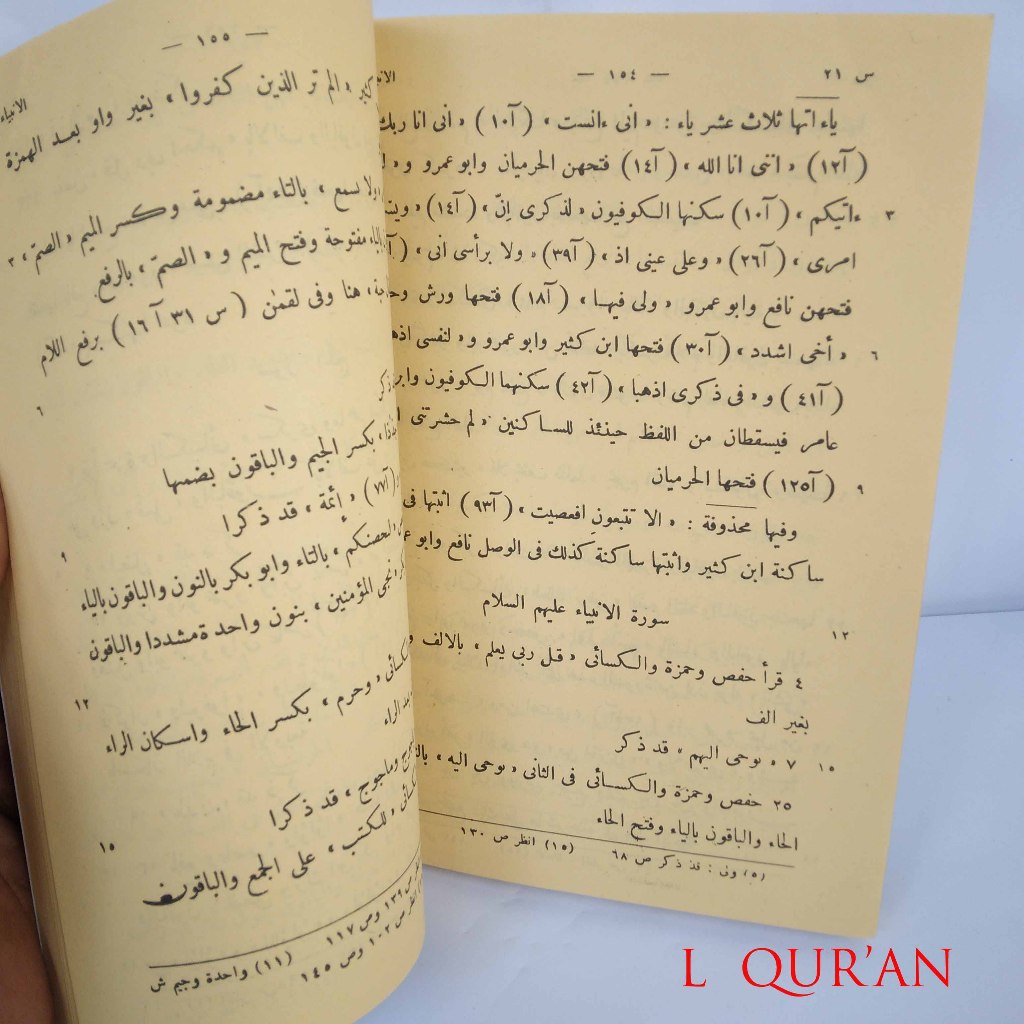 س ٢١ — ١٥٤ — الانبـ
ياءاتها ثلاث عشر ياء : « انى ءانست » ( آ١٠ ) « انى انا ربك
( آ١٢ ) « اننى انا الله » ( آ١٤ ) فتحهن الحرميان وابو عمرو و «
٣ ءاتيكم » ( آ١٠ ) سكنها الكوفيون « لذكرى انّ » ( آ١٤ ) « ويسـ
امرى » ( آ٢٦ ) « وعلى عينى اذ » ( آ٣٩ ) « ولا برأسى انى »
فتحهن نافع وابو عمرو « ولى فيها » ( آ١٨ ) فتحها ورش وحـ
٦ « أخى اشدد » ( آ٣٠ ) فتحها ابن كثير وابو عمرو و « لنفسى اذهـ
( آ٤١ ) و « فى ذكرى اذهبا » ( آ٤٢ ) سكنهما الكوفيون وابن
عامر فيسقطان من اللفظ حينئذ للساكنين « لم حشرتنى
٩ ( آ١٢٥ ) فتحها الحرميان
وفيها محذوفة : « الا تتبعون افعصيت » ( آ٩٣ ) اثبتها فى
ساكنة ابن كثير واثبتها ساكنة كذلك فى الوصل نافع وابو عـ
١٢ سورة الانبياء عليهم السلام
٤ قرأ حفص وحمزة والكسائى « قل ربى يعلم » بالالف
بغير الف
١٥ ٧ « نوحى اليهم » قد ذكر
٢٥ حفص وحمزة والكسائى فى الثانى « نوحى اليه »
الحاء والباقون بالياء وفتح الحاء
(٥) ونى : قد ذكر ص ٦٨ (١٥) انظر ص ١٣٠
— ١٥٥ — الانبياء
« الم تر الذين كفروا » بغير واو بعد الهمزة
« ولا تسمع » بالتاء مضمومة وكسر الميم « الصمّ » ٣
بالياء مفتوحة وفتح الميم و « الصمّ » بالرفع
هنا وفى لقمن ( س ٣١ آ ١٦ ) برفع اللام
٦
بكسر الجيم والباقون بضمها
( آ٧٧ ) « أئمة » قد ذكرا
٩ « لتحصنكم » بالتاء وابو بكر بالنون والباقون بالياء
« نجى المؤمنين » بنون واحدة مشددا والباقون
١٢ « وحرم » بكسر الحاء واسكان الراء
بعد الراء
وماجوج » قد ذكرا
١٥ « للكتب » على الجمع والباقون
ص ١٣٩ وص ١١٧ (١١) واحدة وجيم ش
انظر ص ١٠٢ وص ١٤٥
L QUR'AN